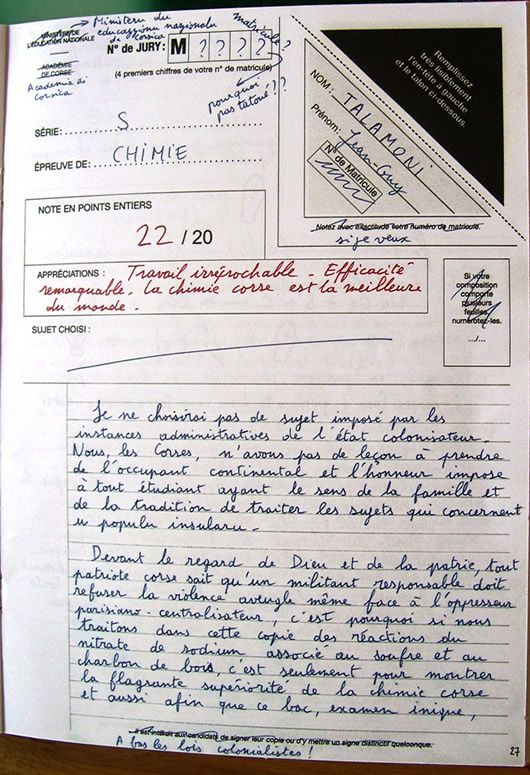 → Ministeru du
MINISTÈRE DE
L'ÉDUCATION NATIONALE
educazione nazionalu
di Corsica
ACADÉMIE
DE CORSE
Academia di
Corsica
N° de JURY : M ? ? ? ?
matricule ?
(4 premiers chiffres de votre n° de matricule)
pourquoi
pas tatoué ???
SÉRIE : S
ÉPREUVE DE : CHIMIE
Remplissez
très lisiblement
l'en-tête à gauche
et le talon ci-dessous.
NOM : TALAMONI
Prénom : Jean-Guy
N° de Matricule
Notez avec exactitude votre numéro de matricule.
si je veux
NOTE EN POINTS ENTIERS
22 / 20
APPRÉCIATIONS : Travail irréprochable - Efficacité
remarquable. La chimie corse est la meilleure
du monde.
Si votre
composition
comporte
plusieurs
feuilles,
numérotez-les.
.../...
SUJET CHOISI :
Je ne choisirai pas de sujet imposé par les
instances administratives de l'état colonisateur.
Nous, les Corses, n'avons pas de leçon à prendre
de l'occupant continental et l'honneur impose
à tout étudiant ayant le sens de la famille et
de la tradition de traiter les sujets qui concernent
u populu insularu -
Devant le regard de Dieu et de la patrie, tout
patriote corse sait qu'un militant responsable doit
refuser la violence aveugle même face à l'oppresseur
parisiano-centralisateur, c'est pourquoi si nous
traitons dans cette copie des réactions du
nitrate de sodium associé au soufre et au
charbon de bois, c'est seulement pour montrer
la flagrante supériorité de la chimie corse
et aussi afin que ce bac, examen inique,
Il est interdit aux candidats de signer leur copie ou d'y mettre un signe distinctif quelconque.
A bas les lois colonialistes !
27